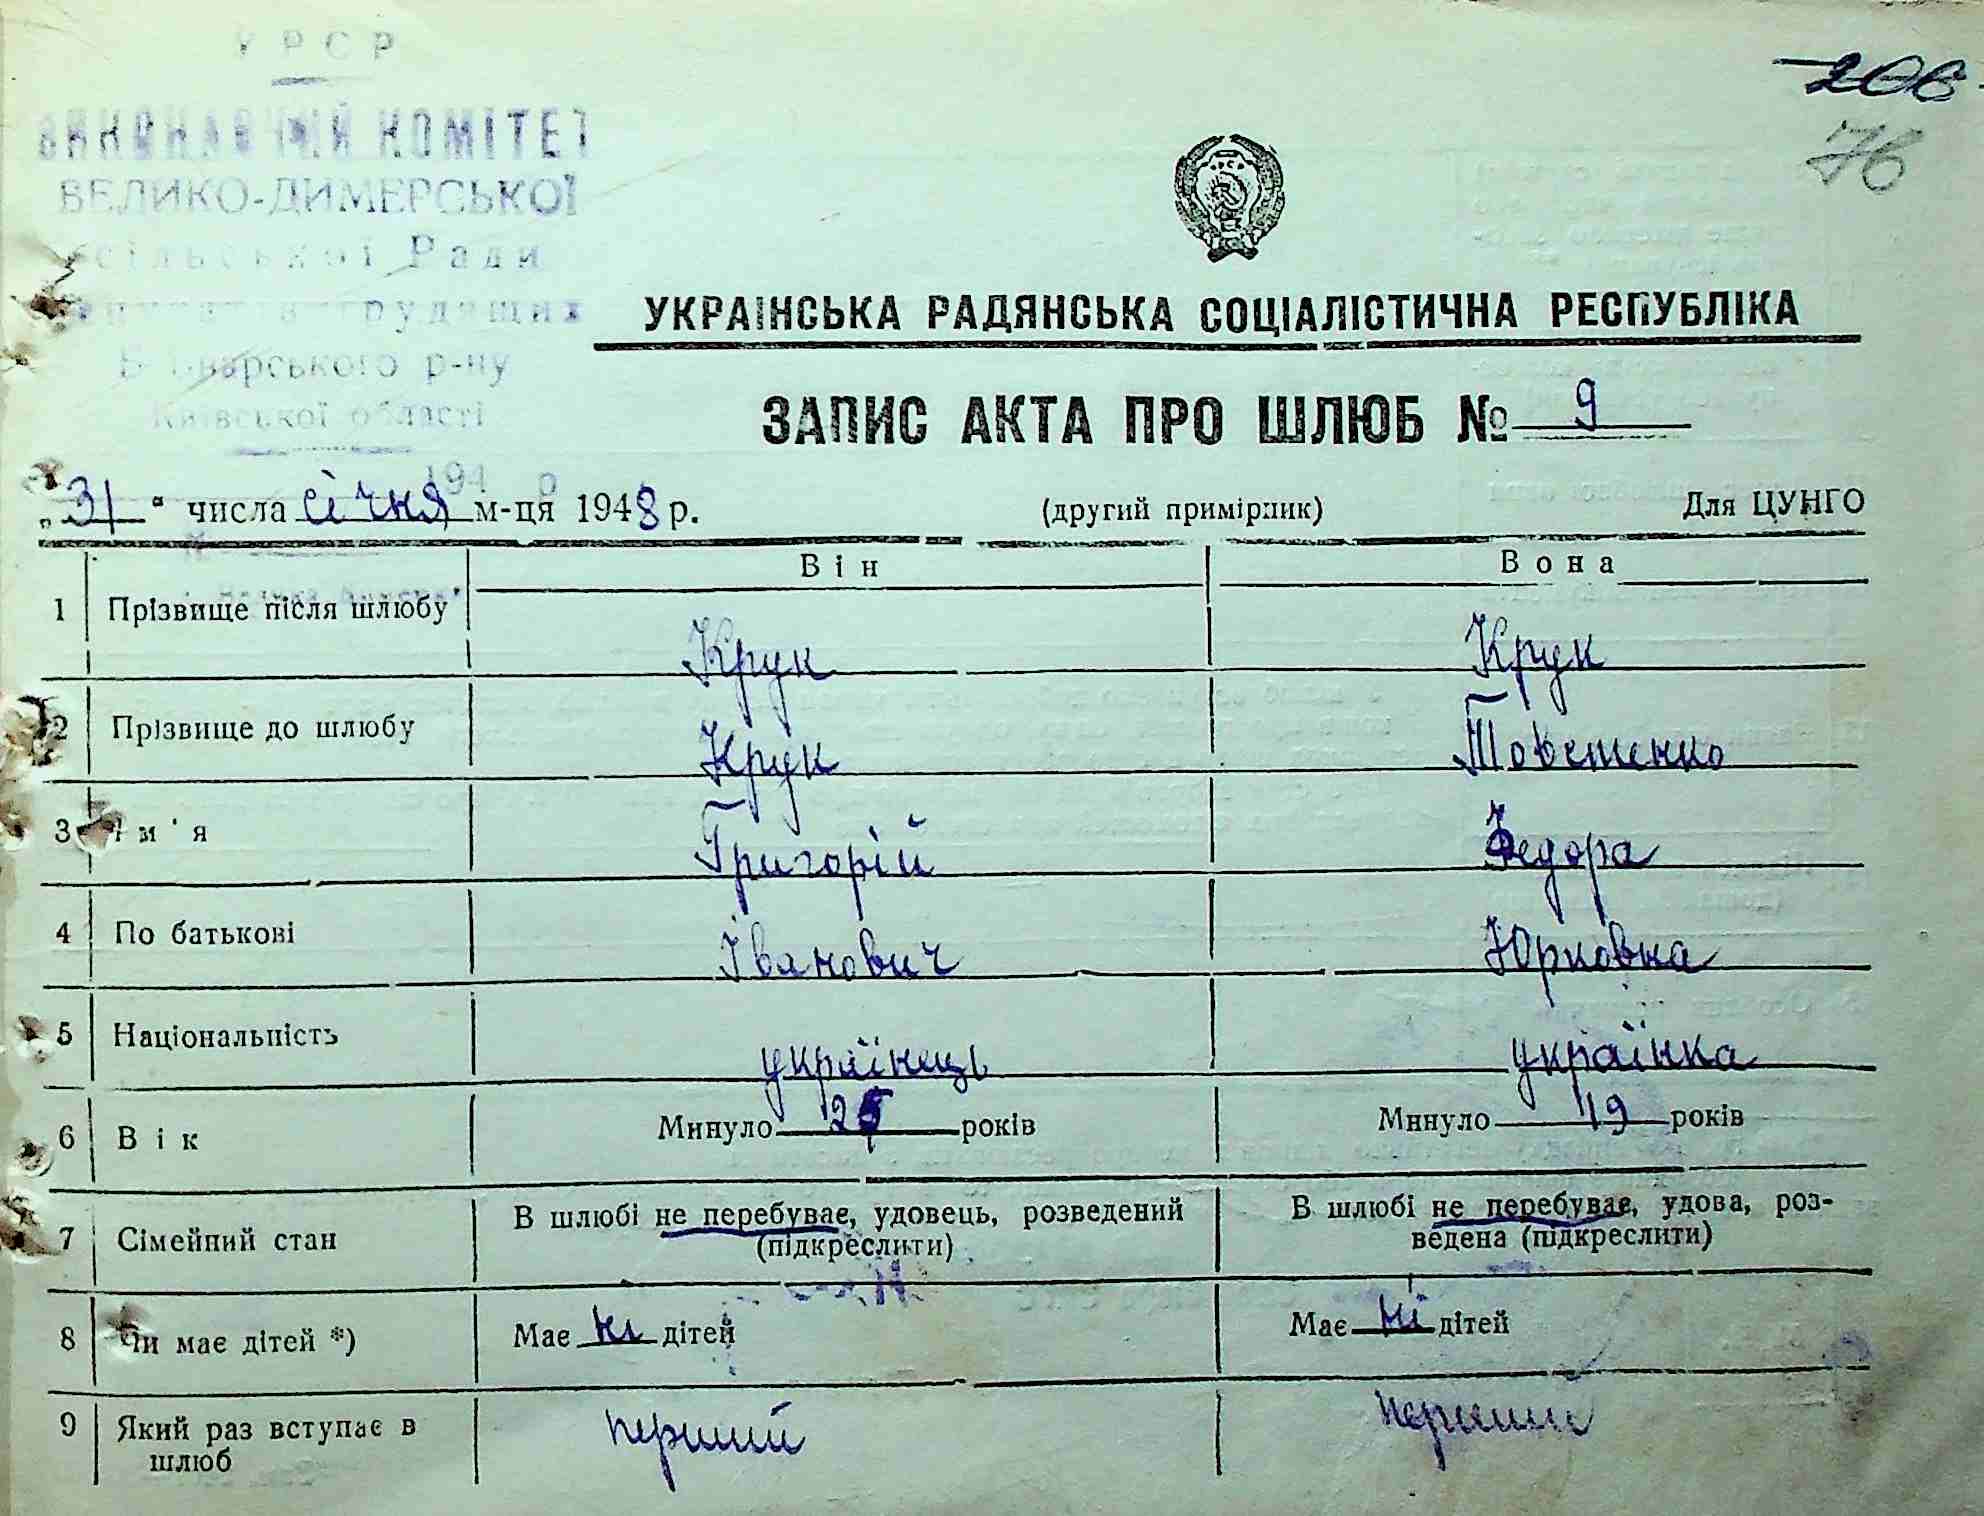 УРСР
ВИКОНАВЧИЙ КОМІТЕТ
ВЕЛИКО-ДИМЕРСЬКОЇ
сільської Ради
трудящих
р-ну
Київської області
194 р
206
76
УКРАЇНСЬКА РАДЯНСЬКА СОЦІАЛІСТИЧНА РЕСПУБЛІКА
ЗАПИС АКТА ПРО ШЛЮБ № 9
„31“ числа січня м-ця 1948 р. (другий примірник) Для ЦУНГО
Він Вона
1 Прізвище після шлюбу Крук Крук
2 Прізвище до шлюбу Крук Товстенко
3 Ім'я Григорій Федора
4 По батькові Іванович Юрковна
5 Національність українець українка
6 Вік Минуло 25 років Минуло 19 років
7 Сімейний стан В шлюбі не перебуває, удовець, розведений (підкреслити) В шлюбі не перебуває, удова, роз-
ведена (підкреслити)
8 Чи має дітей *) Має ні дітей Має ні дітей
9 Який раз вступає в шлюб перший перший